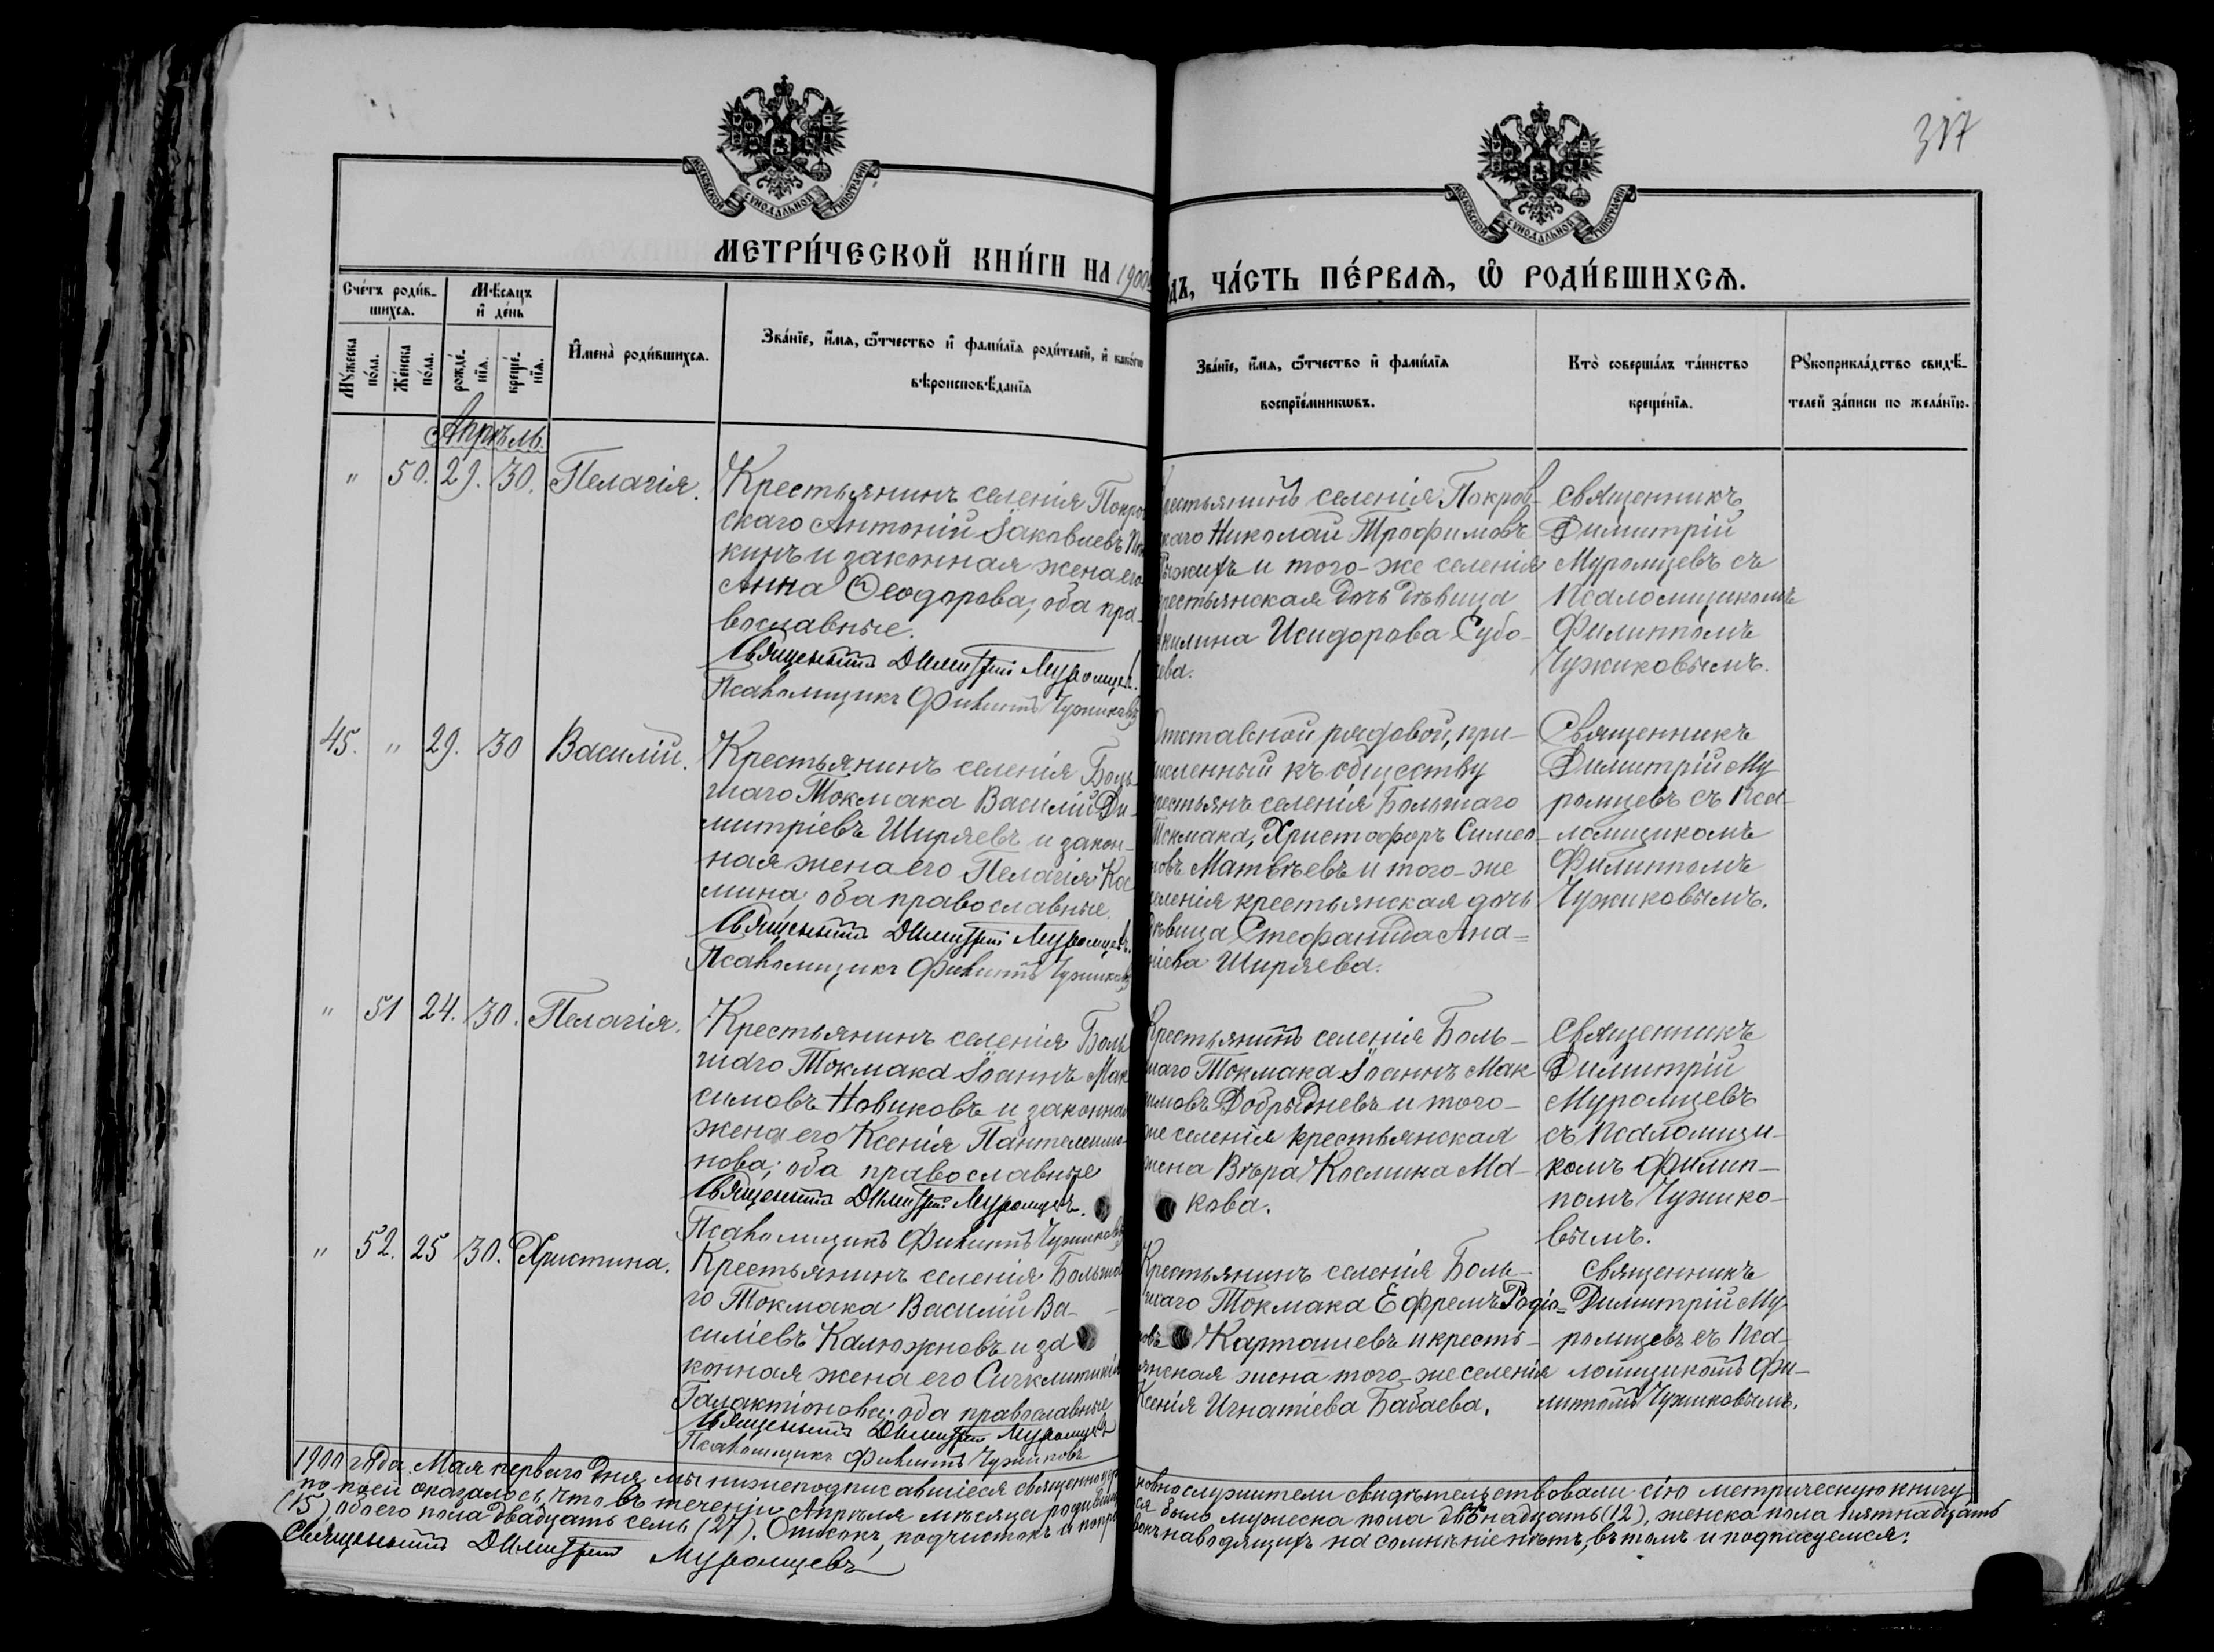 317
МОСКОВСКОЙ СѴНОДАЛЬНОЙ ТИПОГРАФІИ
МОСКОВСКОЙ СѴНОДАЛЬНОЙ ТИПОГРАФІИ
МЕТРИ́ЧЕСКОЙ КНИ́ГИ НА 1900
ЧА́СТЬ ПЕ́РВАѦ, Ѽ РОДИ́ВШИХСѦ.
Сче́тъ роди́в-
шихсѧ.
Мѣ́сѧцъ
и҆ де́нь
Мꙋ́жеска
по́ла.
Же́нска
по́ла.
рожде́-
нїѧ.
креще́-
нїѧ.
И҆мена̀ роди́вшихсѧ.
Зва́нїе, и҆́мѧ, ѻ҆́тчество и҆ фамѝлїѧ роди́телей, и҆ како́гѡ
вѣроисповѣ́данїѧ
Зва́нїе, и҆́мѧ, ѻ҆́тчество и҆ фамѝлїѧ
воспрїе́мникѡвъ.
Кто̀ соверша́лъ та́инство
креще́нїѧ.
Рꙋкоприкла́дство свидѣ́-
телей за́писи по жела́нїю.
Апрѣль.
" 50. 29. 30. Пелагія.
Крестьянинъ селенія Покров
скаго Антоній Іаковлевъ
кинъ и законная жена его
Анна Ѳеодорова; оба пра-
вославные.
Священникъ Димитрій Муромцевъ.
Псаломщикъ Филиппъ Чужиковъ
рестьянинъ селенія Покров-
скаго Николай Трофимовъ
и того-же селенія
рестьянская дочь дѣвица
килина Исидорова Субо-
ева.
священникъ
Димитрій
Муромцевъ съ
Псаломщикомъ
Филиппомъ
Чужиковымъ.
45. " 29. 30 Василій.
Крестьянинъ селенія Боль-
шаго Токмака Василій Ди-
митріевъ Ширяевъ и закон-
ная жена его Пелагія Кос
мина; оба православные.
Священникъ Димитрій Муромцевъ.
Псаломщикъ Филиппъ Чужиковъ
Отставной рядовой, при-
численный къ обществу
рестьянъ селенія Большаго
Токмака, Христофоръ Симео-
новъ Матвѣевъ и того-же
селенія крестьянская дочь
дѣвица Стефанида Ана=
ніева Ширяева.
Священникъ
Димитрій Му
ромцевъ съ Пса-
ломщикомъ
Филиппомъ
Чужиковымъ.
" 51 24. 30. Пелагія.
Крестьянинъ селенія Боль
шаго Токмака Іоаннъ Мак
симовъ Новиковъ и законная
жена его Ксенія Пантелеимо-
нова; оба православные
Священникъ Димитрій Муромцевъ.
Псаломщикъ Филиппъ Чужиковъ
Крестьянинъ селенія Боль-
шаго Токмака Іоаннъ Мак
симовъ Добрыдневъ и того-
же селенія крестьянская
жена Вѣра Космина Ма-
кова.
священникъ
Димитрій
Муромцевъ
съ Псаломщи-
комъ Филип-
помъ Чужико-
вымъ.
" 52. 25 30. Христина.
Крестьянинъ селенія Больша
го Токмака Василій Ва-
силіевъ Калюжновъ и за
конная жена его Сигклитикія
Галактіонова; оба православные
Священникъ Димитрій Муромцевъ
Псаломщикъ Филиппъ Чужиковъ
Крестьянинъ селенія Боль-
шаго Токмака Ефремъ Родіо=
новъ Карташевъ и кресть-
янская жена того-же селенія
Ксенія Игнатіева Бабаева.
священникъ
Димитрій Му
ромцевъ съ Пса-
ломщикомъ Фи-
липпомъ Чужиковымъ.
1900 года Мая перваго дня мы нижеподписавшіеся священно церковнослужители свидѣтельствовали сію метрическую книгу
по коей оказалось, что въ теченіи Апрѣля мѣсяца родившихся было мужеска пола двѣнадцать (12), женска пола пятнадцать
(15), обоего пола двадцать семь (27). Описокъ, подчистокъ и поправокъ наводящихъ на сомнѣніе нѣтъ, въ томъ и подписуемся:
Священникъ Димитрій Муромцевъ